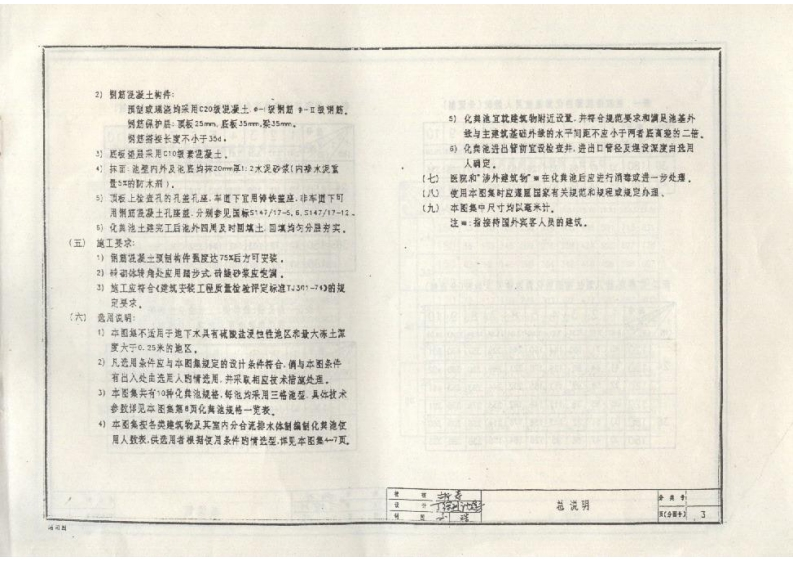 2) 钢筋混凝土构件:
预制或现浇均采用C20级混凝土.φ-Ⅰ级钢筋 φ-Ⅱ级钢筋。
钢筋保护层:顶板25mm.底板35mm.梁35mm。
钢筋搭接长度不小于35d。
3) 底板垫层采用C10级素混凝土。
4) 抹面:池壁内外及池底均抹20mm厚1:2水泥砂浆(内掺水泥重
量5%的防水剂)。
5) 顶板上检查孔的孔盖孔座.车道下宜用铸铁盖座.非车道下可
用钢筋混凝土孔座盖.分别参见国标S147/17-5,6.S147/17-12。
6) 化粪池土建完工后池外四周及时回填土.回填均匀分层夯实。
(五) 施工要求:
1) 钢筋混凝土预制构件强度达75%后方可安装。
2) 砖砌体转角处应用踏步式.砖缝砂浆应饱满。
3) 施工应符合《建筑安装工程质量检验评定标准TJ301-74》的规
定要求。
(六) 选用说明:
1) 本图集不适用于地下水具有硫酸盐侵蚀性地区和最大冻土深
度大于0.25米的地区。
2) 凡选用条件应与本图集规定的设计条件符合.倘与本图条件
有出入处由选用人酌情选用.并采取相应技术措施处理。
3) 本图集共有10种化粪池规格.每池均采用三格池型.具体技术
参数详见本图集第8页化粪池规格一览表。
4) 本图集按各类建筑物及其室内分合流排水体制编制化粪池使
用人数表.供选用者根据使用条件酌情选型.详见本图集4-7页。
5) 化粪池宜就建筑物附近设置.并符合规范要求和满足池基外
缘与主建筑基础外缘的水平间距不应小于两者底高差的二倍。
6) 化粪池进出管前宜设检查井.进出口管径及埋设深度由选用
人确定。
(七) 医院和"涉外建筑物"※在化粪池后应进行消毒或进一步处理。
(八) 使用本图集时应遵照国家有关规范和规程或规定办理。
(九) 本图集中尺寸均以毫米计。
注※:指接待国外宾客人员的建筑。
校 核
设 计
制 图
总说明
分类号
页(分图号) 3